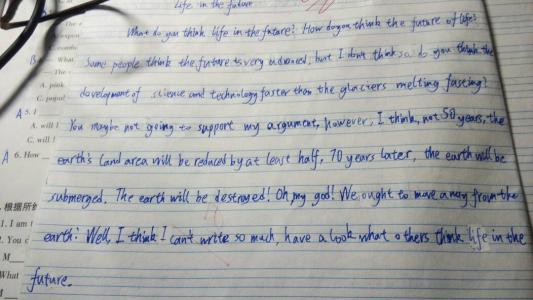 Life in the future
What do you think life in the future? How do you think the future of life?
Some people think the future is very advanced, but I don't think so. do you think the
development of science and technology faster than the glaciers melting fasting?
You maybe not going to support my argument, however, I think, not 50 years, the
earth's land area will be reduced by at least half, 70 years later, the earth will be
submerged. The earth will be destroyed! Oh, my god! We ought to move away from the
earth! Well, I think I can't write so much, have a look what others think life in the
future.
A 5. I
A. will l
C. will l
A 6. How
根据所给
1. I am
2. You c
M
What